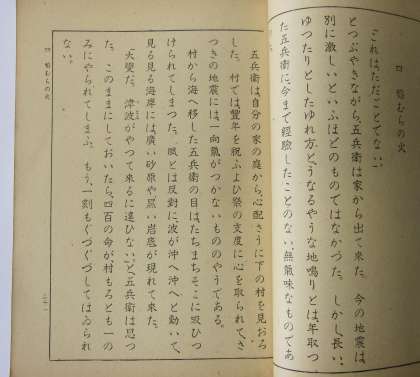 四 稲むらの火
「これはただごとでない。」
とつぶやきながら、五兵衛は家から出て來た。今の地震は、
別に激しいといふほどのものではなかつた。しかし、長い、
ゆつたりとしたゆれ方と、うなるやうな地鳴りとは、年取つ
た五兵衛に、今まで經驗したことのない、無氣味なものであ
つた。
五兵衛は、自分の家の庭から、心配さうに下の村を見おろ
した。村では、豐年を祝ふよひ祭の支度に心を取られて、さ
つきの地震には、一向氣がつかないもののやうである。
村から海へ移した五兵衛の目は、たちまちそこに吸ひつ
けられてしまつた。風とは反對に、波が沖へ沖へと動いて、
見る見る海岸には、廣い砂原や、黒い岩底が現れて來た。
「大變だ。津波がやつて來るに違ひない。」と、五兵衛は思つ
た。このままにしておいたら、四百の命が、村もろとも一の
みにやられてしまふ。もう、一刻もぐづぐづしてはゐられ
ない。
四 稲むらの火
三十一